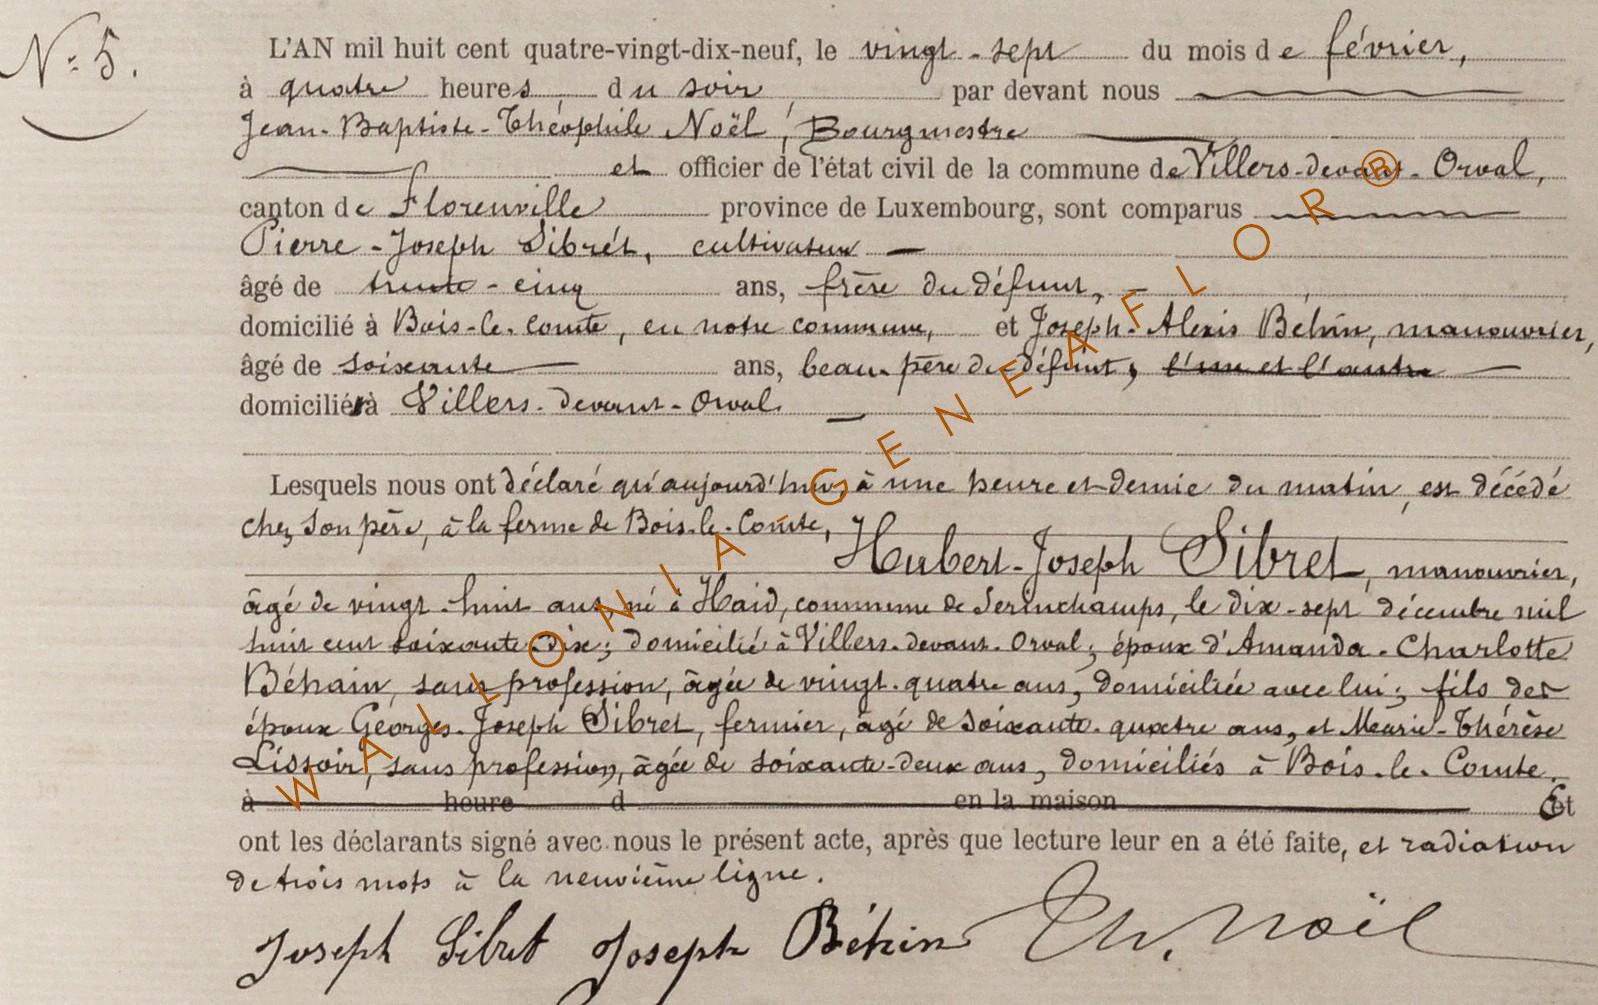 N° 5.
L'AN mil huit cent quatre-vingt-dix-neuf, le vingt-sept du mois de février,
à quatre heures du soir par devant nous
Jean-Baptiste-Théophile Noël, Bourgmestre
et officier de l'état civil de la commune de Villers-devant-Orval,
canton de Florenville province de Luxembourg, sont comparus
Pierre-Joseph Sibret, cultivateur
âgé de trente-cinq ans, frère du défunt,
domicilié à Bois-le-Comte, en notre commune, et Joseph-Alexis Béhin, manouvrier,
âgé de soixante ans, beau-père du défunt, l'un et l'autre
domicilié à Villers-devant-Orval.
Lesquels nous ont déclaré qu'aujourd'hui, à une heure et demie du matin, est décédé
chez son père, à la ferme de Bois-le-Comte,
Hubert-Joseph Sibret, manouvrier,
âgé de vingt-huit ans, né à Haid, commune de Serinchamps, le dix-sept décembre mil
huit cent soixante-dix; domicilié à Villers-devant-Orval; époux d'Amanda-Charlotte
Béhain, sans profession, âgée de vingt-quatre ans, domiciliée avec lui; fils des
époux Georges-Joseph Sibret, fermier, âgé de soixante-quatre ans, et Marie-Thérèse
Lissoir, sans profession, âgée de soixante-deux ans, domiciliés à Bois-le-Comte.
à heure d en la maison Et
ont les déclarants signé avec nous le présent acte, après que lecture leur en a été faite, et radiation
de trois mots à la neuvième ligne.
Joseph Sibret Joseph Béhin Th. Noël
WALLONIA-GENEAFLOR®